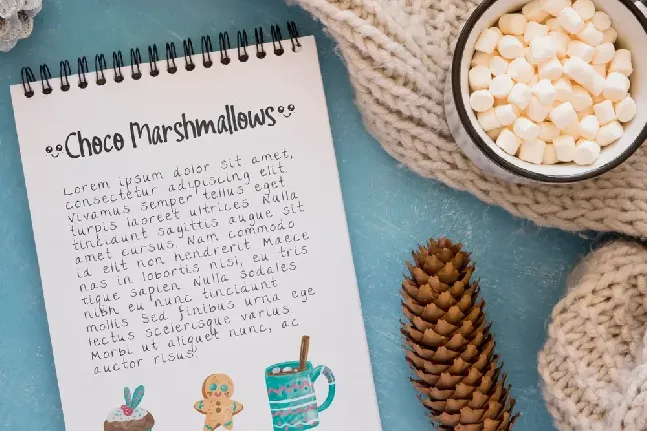 Choco Marshmallows
Lorem ipsum dolor sit amet,
consectetur adipiscing elit.
Vivamus semper tellus eget
turpis laoreet ultrices. Nulla
tincidunt sagittis augue sit
amet cursus. Nam commodo
id elit non hendrerit. Maece
nas in lobortis nisi, eu tris
tique sapien. Nulla sodales
nibh eu nunc tincidunt
mollis. Sed finibus urna ege
lectus scelerisque varius.
Morbi ut aliquet nunc, ac
auctor risus.